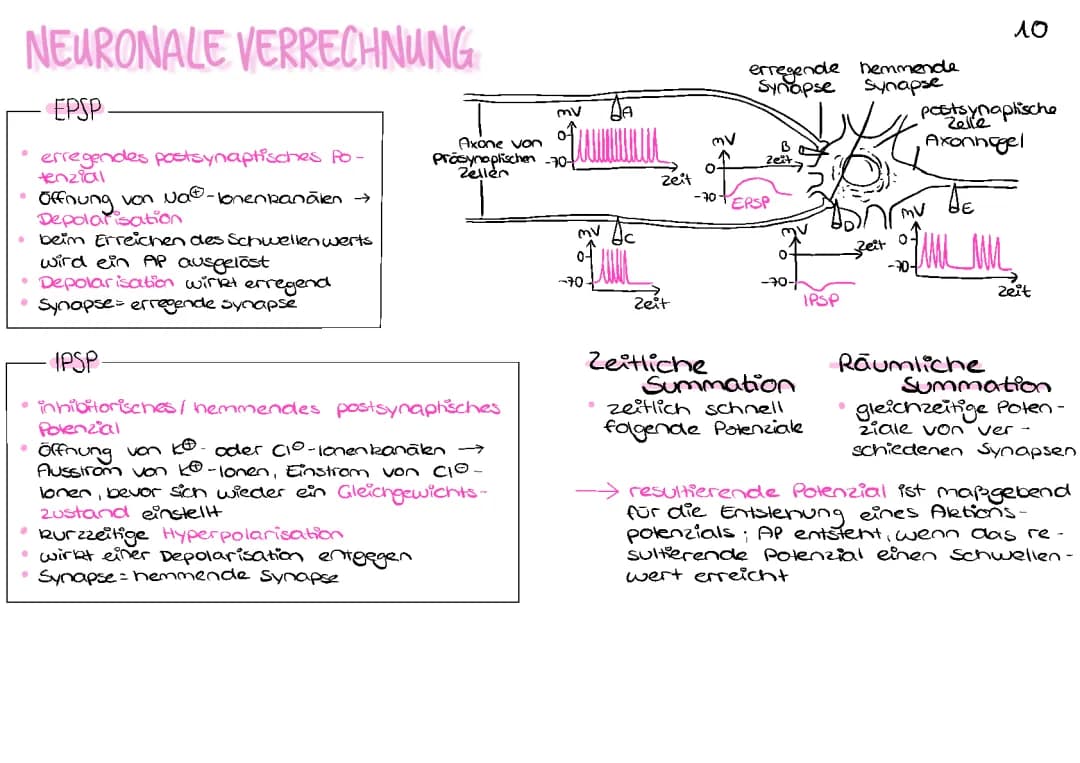 10
NEURONALE VERRECHNUNG
EPSP
• erregendes postsynaptisches Po-
tenzial
• Öffnung von Na⊕-Ionenkanälen →
Depolarisation
• beim Erreichen des Schwellenwerts
wird ein AP ausgelöst
• Depolarisation wirkt erregend
• Synapse = erregende Synapse
erregende
Synapse
hemmende
Synapse
postsynaptische
Zelle
Axonhügel
Axone von
Präsynaptischen
Zellen
mV
A
0
-70
Zeit
mV
B
0
Zeit
-70
EPSP
mV
C
0
-70
Zeit
mV
D
0
Zeit
-70
IPSP
mV
E
0
-70
Zeit
IPSP
• inhibitorisches / hemmendes postsynaptisches
Potenzial
• Öffnung von K⊕- oder Cl⊖-Ionenkanälen →
Ausstrom von K⊕-Ionen, Einstrom von Cl⊖-
Ionen, bevor sich wieder ein Gleichgewichts-
zustand einstellt
• kurzzeitige Hyperpolarisation
• wirkt einer Depolarisation entgegen
• Synapse = hemmende Synapse
Zeitliche
Summation
• zeitlich schnell
folgende Potenziale
Räumliche
Summation
• gleichzeitige Poten-
ziale von ver-
schiedenen Synapsen
→ resultierende Potenzial ist maßgebend
für die Entstehung eines Aktions-
potenzials ; AP entsteht, wenn das re-
sultierende Potenzial einen Schwellen-
wert erreicht